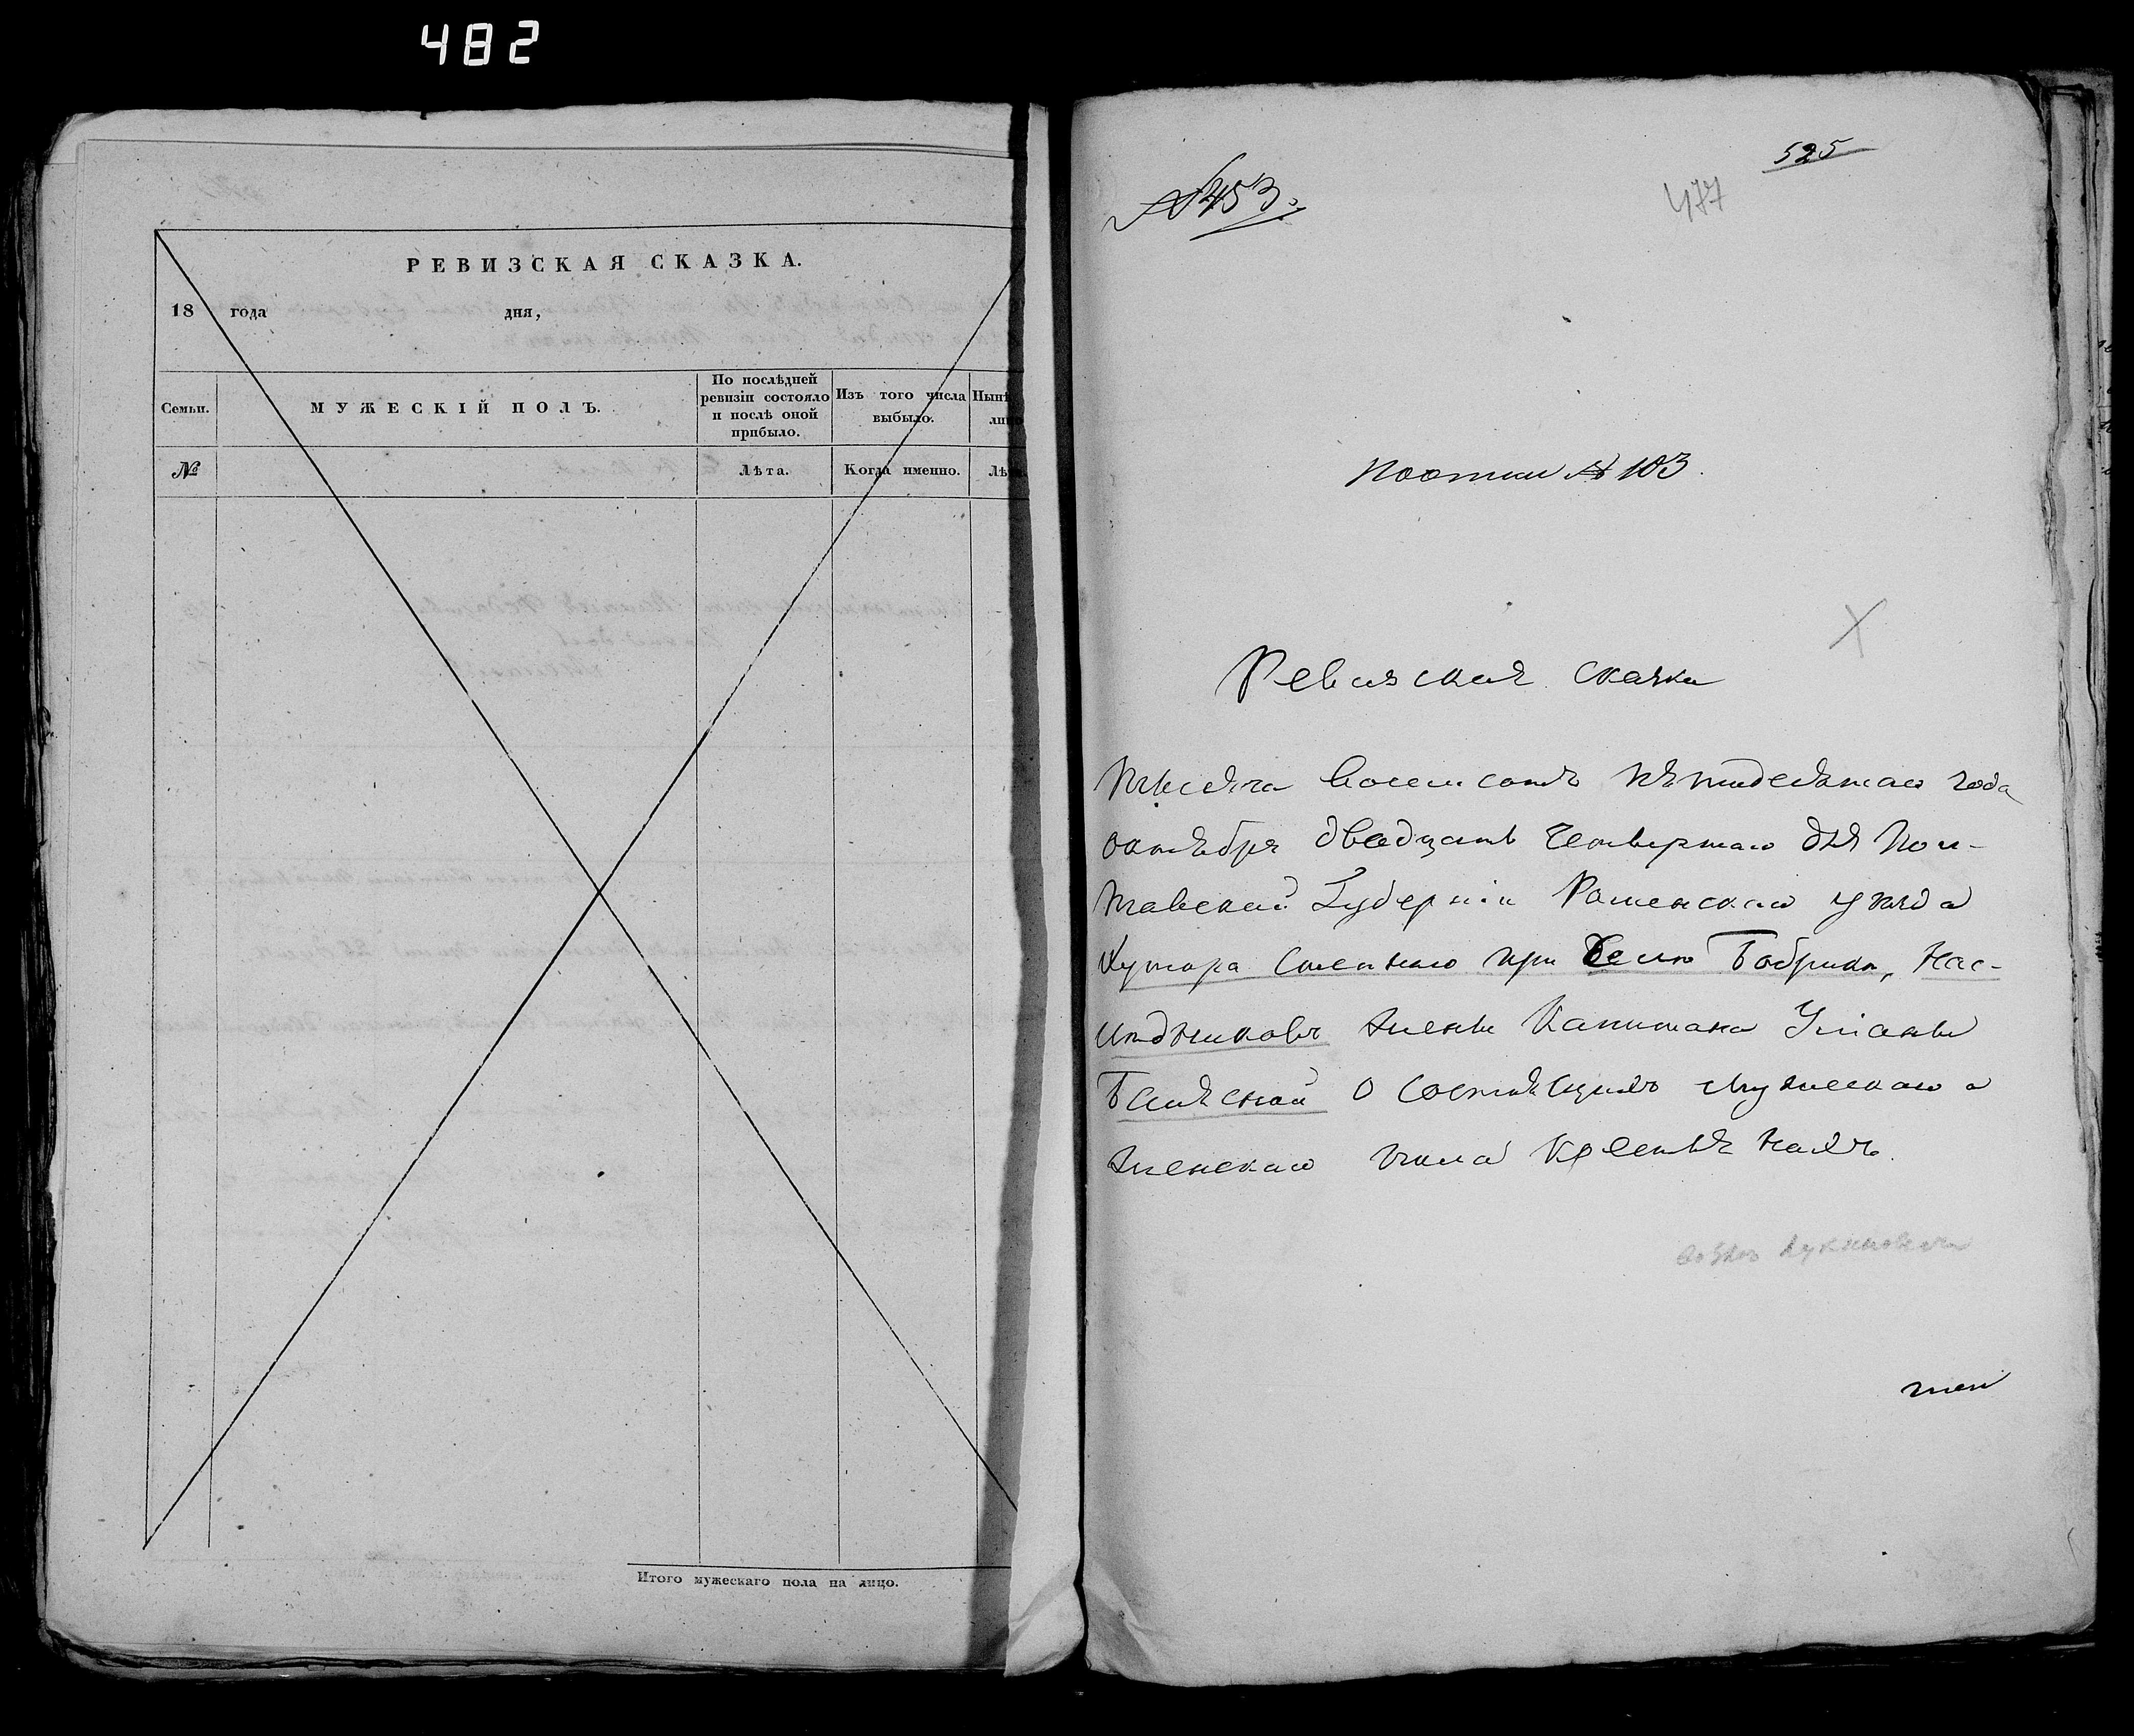 482
РЕВИЗСКАЯ СКАЗКА.
18 года дня,
Семьи.
МУЖЕСКІЙ ПОЛЪ.
По послѣдней
ревизіи состояло
и послѣ оной
прибыло.
Изъ того числа
выбыло.
Нынѣ
лицо
№
Лѣта.
Когда именно.
Лѣ
Итого мужескаго пола на лицо.
525
№ 453.
477
№ 103.
Ревизская сказка
Тысяча восемсотъ пятидесятаго года
октября двадцать четвертаго дня Пол-
тавской Губерніи Роменскаго уѣзда
Хутора Степнаго при Селѣ Бобрикѣ, нас-
лѣдниковъ жены Капитана Ульяны
о состоящихъ мужескаго и
женскаго пола крестьянахъ.